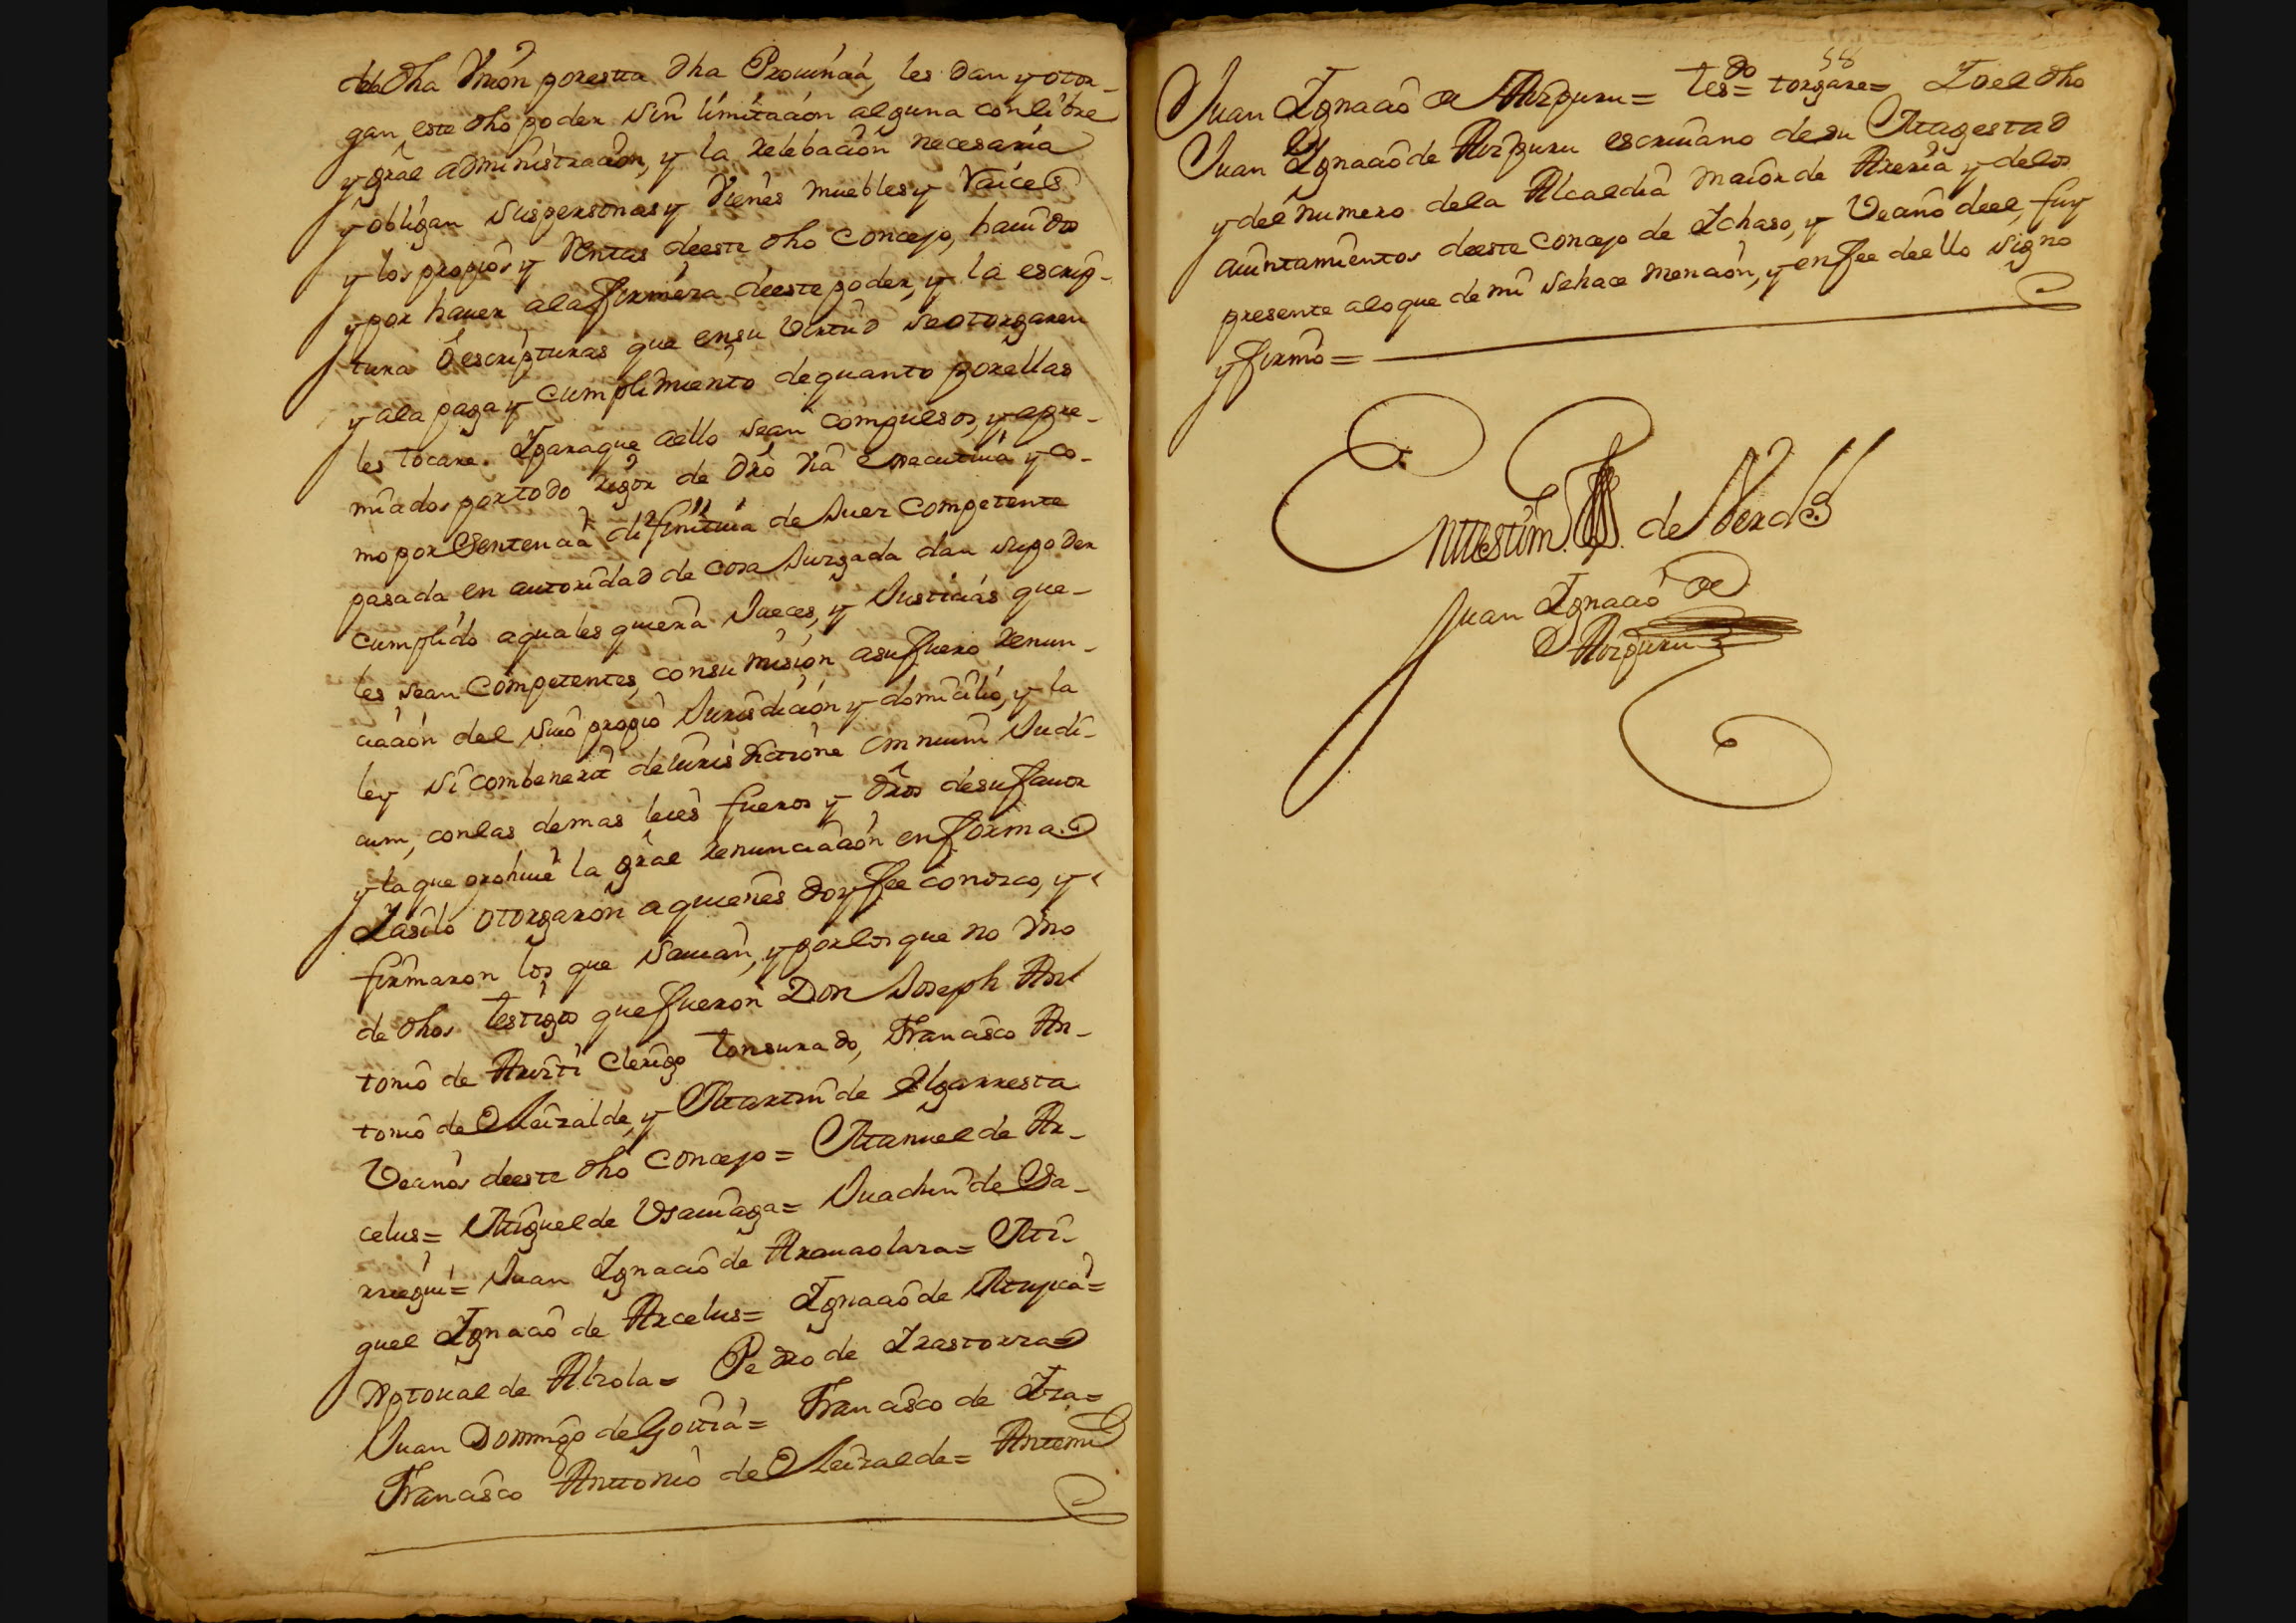 dela dha Vnion por esta dha Prouincia, les dan y otor-
gan este dho poder sin limitacion alguna con libre
y gral administracion, y la relebacion necesaria
y obligan sus personas y vienes muebles y Raices
y los propios y Rentas de este dho Concejo, hauidos
y por hauer ala firmeza de este poder, y la escrip-
tura ô escripturas que en su virtud se otorgaren
y ala paga y cumplimiento de quanto por ellas
les tocare. Y para que a ello sean compulsos, y apre-
miados por todo rigor de dro via executiua y co-
mo por Sentencia difinitiua de Juez Competente
pasada en autoridad de cosa Juzgada dan su poder
cumplido a qualesquiera Jueces, y Justicias que
les sean Competentes, con sumision a su fuero renun-
ciacion del suio propio Jurisdicion y domicilio, y la
ley si combenerit de Iurisdictione omnium Judi-
cum, con las demas leies fueros y dros de su fauor
y la que prohiue la gral renunciacion en forma.
Y asi lo otorgaron a quienes doy fee conozco, y
firmaron los que sauian, y por los que no vno
de dhos testigos que fueron Don Joseph An
tonio de Aruiti Clerigo tonsurado, Francisco An-
tonio de Leizalde, y Martin de Algarresta
Vecinos de este dho Concejo= Manuel de Ar-
celus= Miguel de Vsauiaga= Juachin de Sa-
rriegui= Juan Ignacio de Aramaolaza= Mi-
guel Ignacio de Arcelus= Ignacio de Mujica=
Xptoual de Alzola= Pedro de Irastorza=
Juan Domingo de Goitia= Francisco de Iza=
Francisco Anttonio de Leizalde= Antemi
58
Juan Ignacio de Aizpuru= tesdo= torgare= Yo el dho
Juan Ignacio de Aizpuru escriuano de su Magestad
y del numero dela Alcaldia maior de Areria y delos
aiuntamientos de este Concejo de Ichaso, y Vecino de el, fuy
presente alo que de mi se hace mencion, y en fee de ello signo
y firmo=
En testim. de Verdd
Juan Ignacio de
Aizpuru